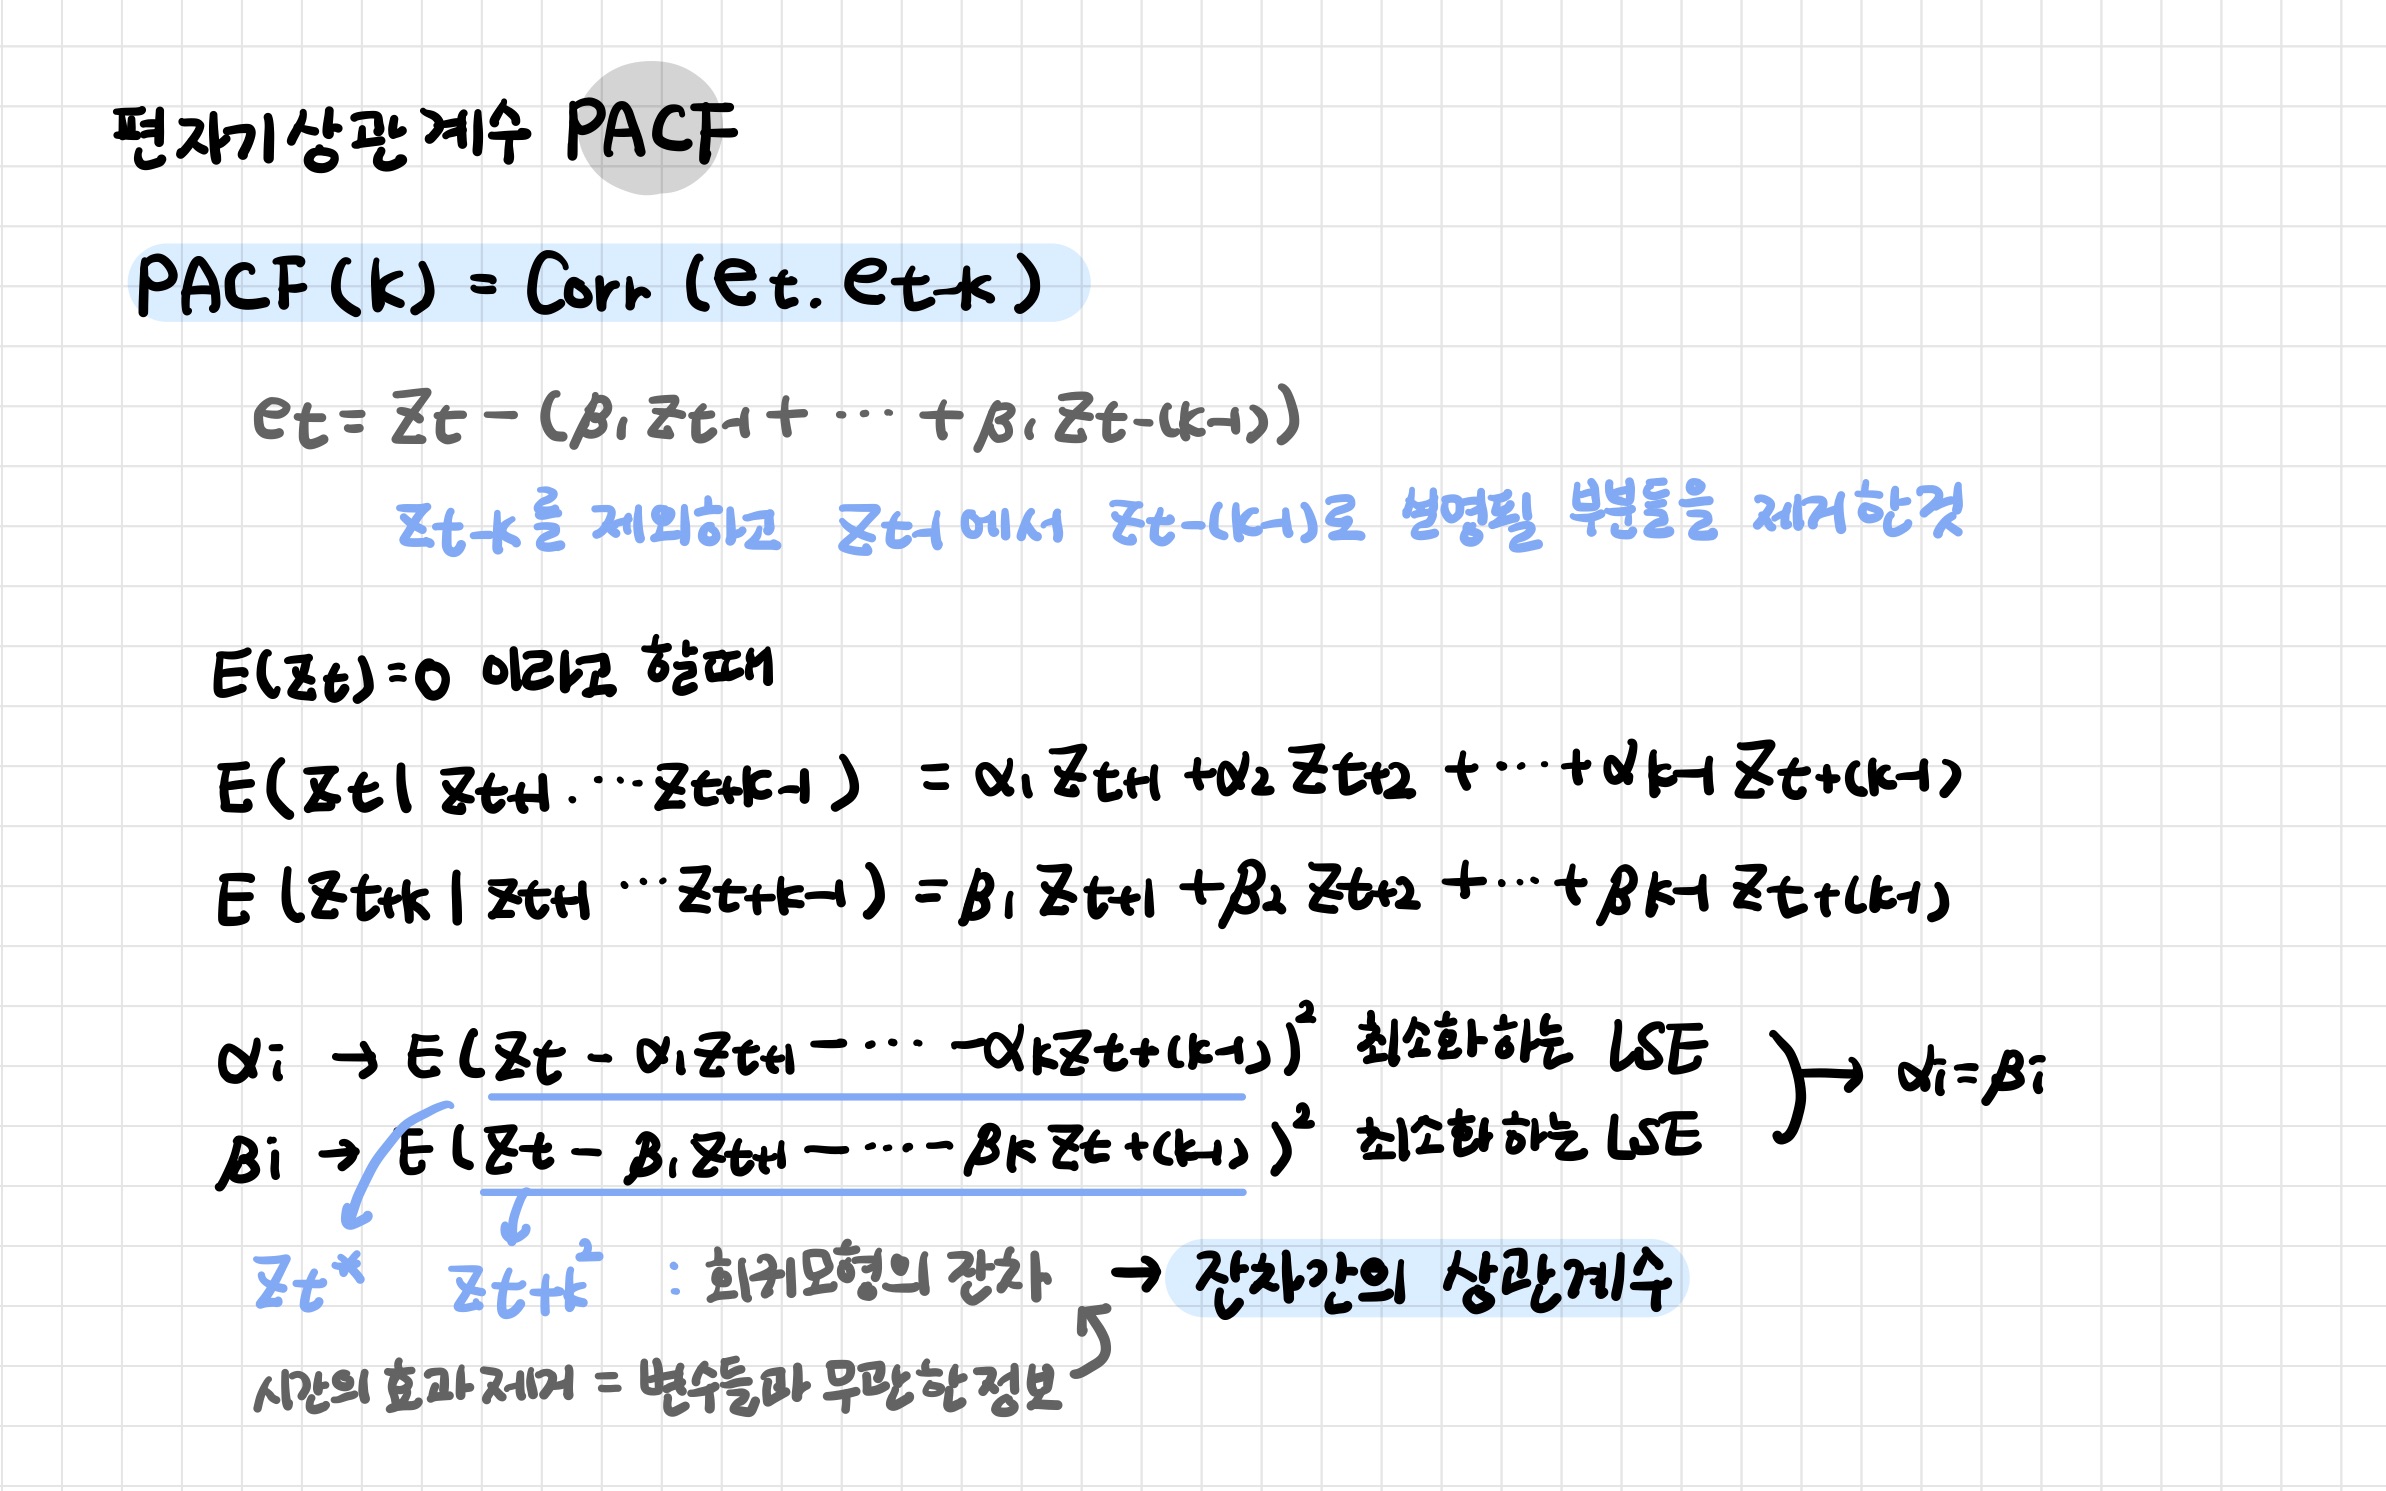 편자기상관계수 PACF
PACF(k) = Corr (et. et-k)
et = Zt - (β₁Zt-1 + ··· + β₁Zt-(k-1))
Zt-k를 제외하고 Zt-1에서 Zt-(k-1)로 설명될 부분들을 제거한것
E(Zt)=0 이라고 할때
E(Zt | Zt+1. ···Zt+k-1) = α₁Zt+1 + α₂Zt+2 + ··· + αk-1 Zt+(k-1)
E(Zt+k | Zt+1 ···Zt+k-1) = β₁Zt+1 + β₂Zt+2 + ··· + βk-1 Zt+(k-1)
αi → E(Zt - α₁Zt+1 - ···· - αkZt+(k-1))² 최소화하는 LSE
βi → E(Zt - β₁Zt+1 - ···· - βkZt+(k-1))² 최소화하는 LSE → αi=βi
Zt* Zt+k² : 회귀모형의 잔차 → 잔차간의 상관계수
시간의 효과 제거 = 변수들과 무관한 정보